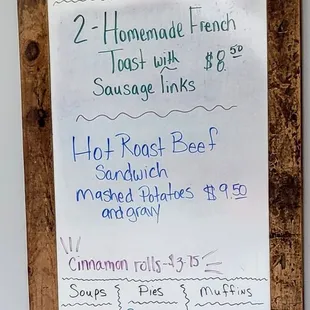 2-Homemade French
Toast with $8.50
Sausage links
Hot Roast Beef
Sandwich
Mashed Potatoes $9.50
and gravy
Cinnamon rolls-$3.75
Soups Pies Muffins